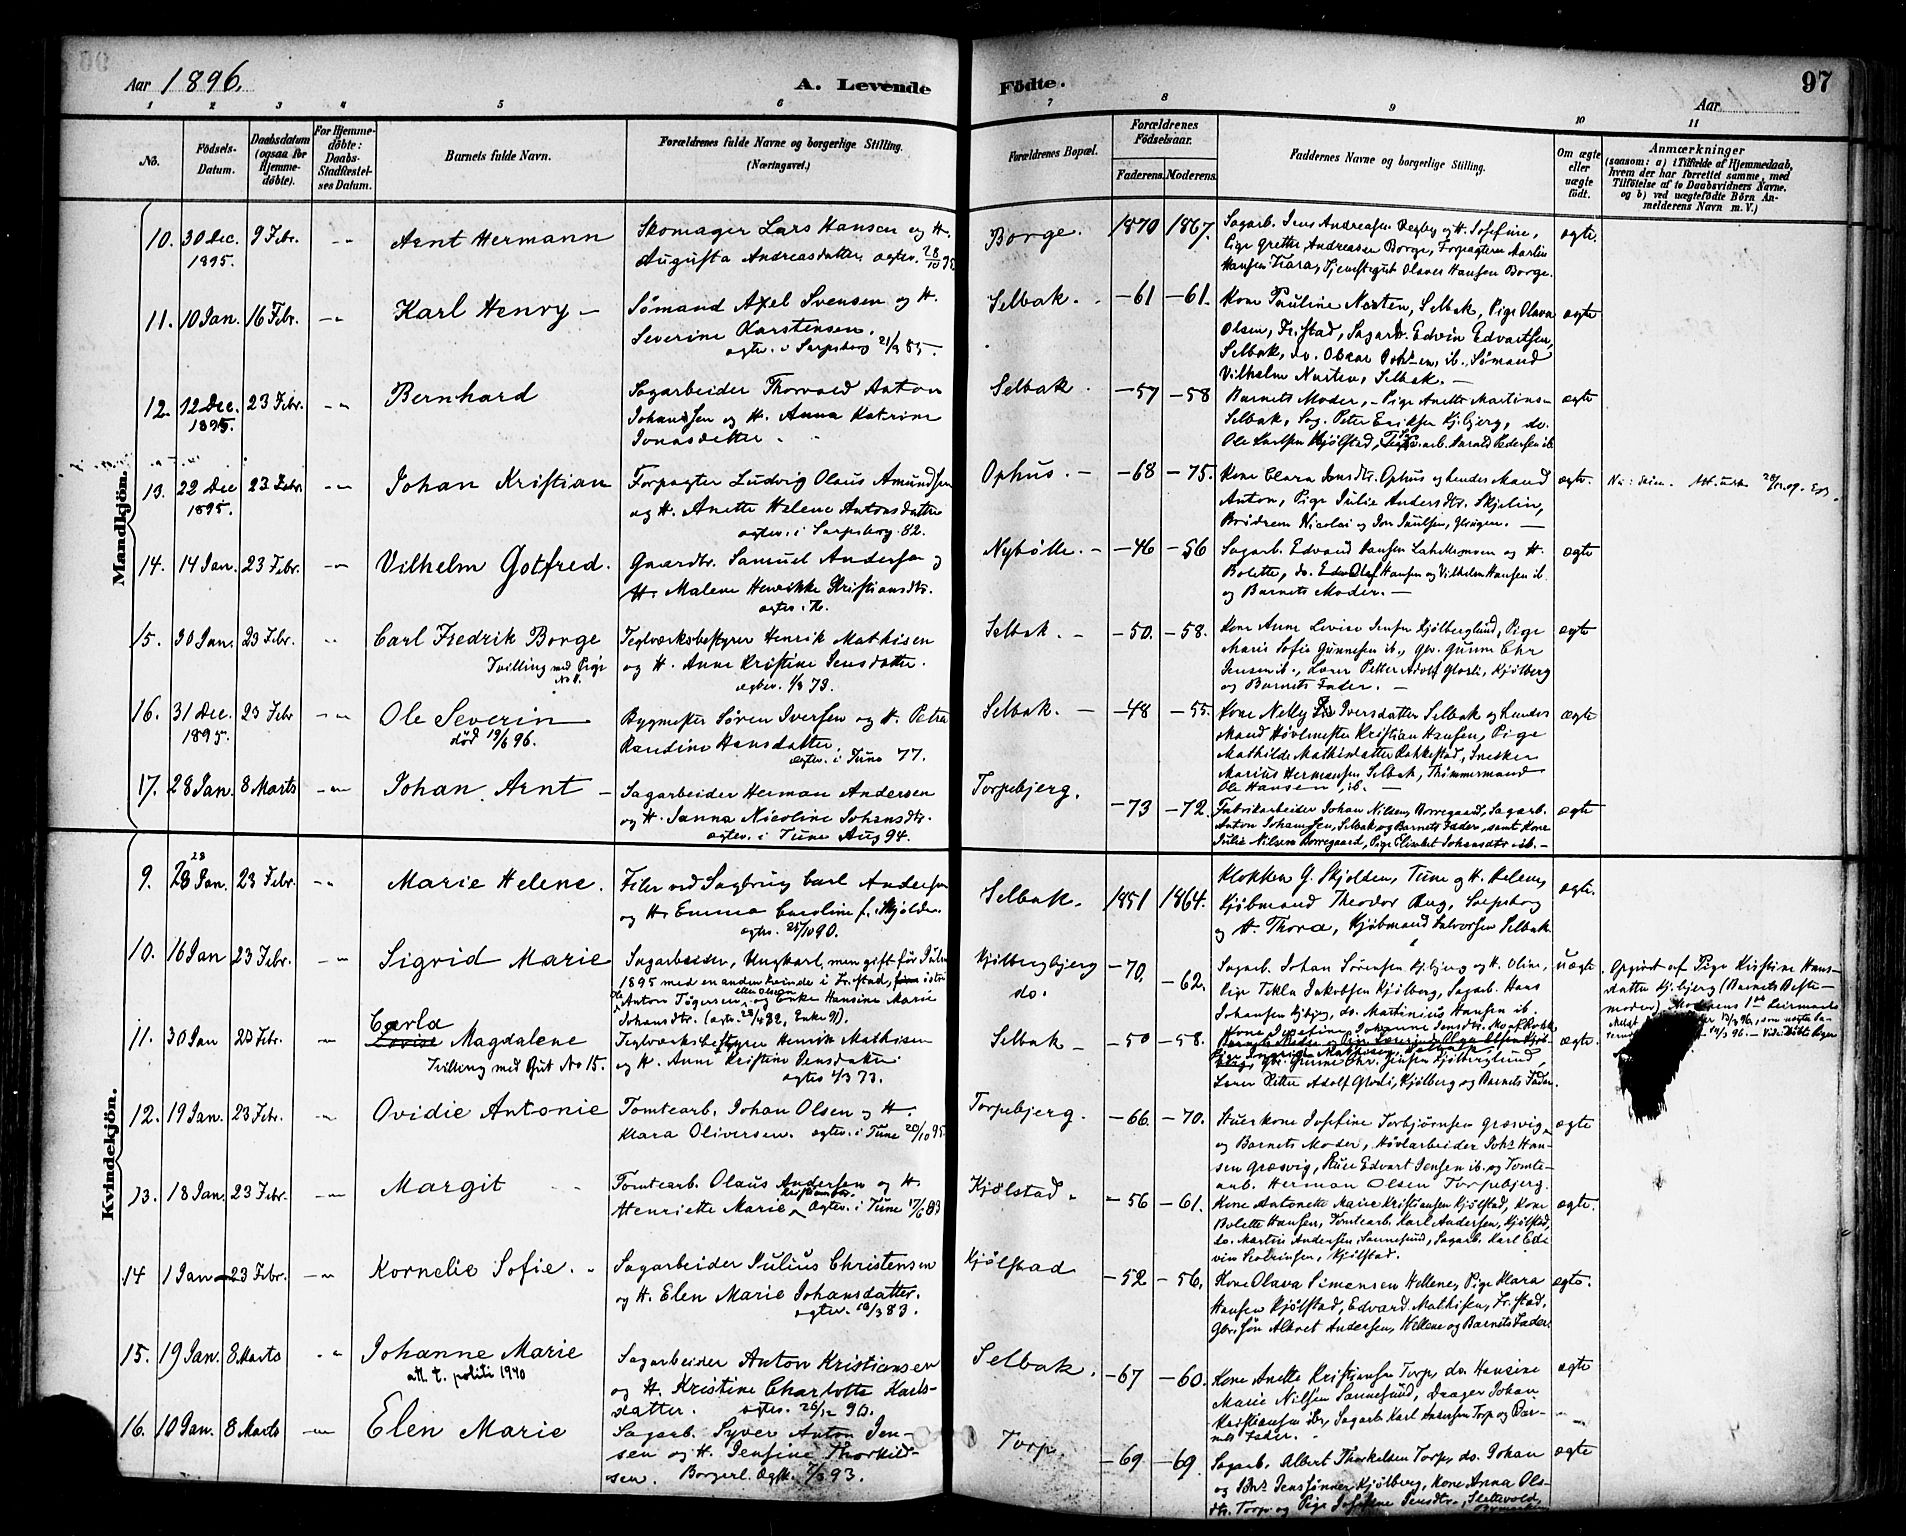 Aar 1896.
A. Levende Fødte.
Aar
97
1 2 3 4 5 6 7 8 9 10 11
No. Fødsels-Datum. Daabsdatum (ogsaa for Hjemme-døbte). For Hjemme-døbte: Daabs-Stadfæstel-ses Datum. Barnets fulde Navn. Forældrenes fulde Navne og borgerlige Stilling. (Næringsvei.) Forældrenes Bopæl. Forældrenes Fødselsaar. Faderens. Moderens. Faddernes Navne og borgerlige Stilling. Om ægte eller uægte født. Anmærkninger
(saasom: a) i Tilfælde af Hjemmedaab, hvem der har forrettet samme, med Tilføielse af to Daabsvidners Navne. og b) ved uægtefødte Børn An-melderens Navn m. V.)
Mandkjön.
10. 30 Dec. 1895. 9 Febr. Arnt Hermann
Skomager Lars Hansen og H.
Augusta Andreasdatter
Borge. 1870 1867. Sagarb. Jens Andreasen og H. Josefine,
Pige Grethe Andreasen Borge, Forpagteren
Hansen Tjenestegut Olaves Hansen Borge.
ægte.
11. 10 Jan. 16 Febr. Karl Henry
Sømand Axel Svensen og H.
Severine Karstensen.
ægtev. i Sarpsborg 21/3 85.
Selbak. -61 -61. Kone Pauline Norten, Selbak, Pige Olava
Olsen, Fr.stad, Sagarb. Edvin Edvartsen,
Selbak, do. Oscar ib. Sømand
Vilhelm Norten, Selbak.
ægte
12. 12 Dec. 1895. 23 Febr. Bernhard
Sagarbeider Thorvald Anton
Johansen og H. Anna Katrine
Jonasdatter
Selbak. -57 -58 Barnets Moder, Pige Anette Martins
Selbak, Sag. Peter Eriksen Kj.bjerg, do.
Ole Karlsen Kjølstad, arb. Harald Pedersen ib.
ægte
13. 22 Dec 1895. 23 Febr. Johan Kristian
Forpagter Ludvig Olaus Amundsen
og H. Anette Helene Antonsdatter
ægtev. i Sarpsborg 82.
Ophus. -68 -75. Kone Clara Jensdtr. Ophus og hendes Mand
Anton, Pige Julie Andersdtr. Skjelin,
Brødrene Nicolai og Paulsen,
ægte.
14. 14 Jan. 23 Febr. Vilhelm Gotfred.
Gaardbr. Samuel Andersen og
H. Malene Henrikke Kristiansdtr.
Nybølle. -46 -56 Sagarb. Edvard Hansen og H.
Bolette, do. Olof Hansen og Vilhelm Hansen ib.
og Barnets Moder.
ægte
15. 30 Jan. 23 Febr. Carl Fredrik Borge
Tvilling med Pige No 11.
Teglværksbestyrer Henrik Mathisen
og H. Anne Kristine Jensdatter.
ægtev. 1/3 73.
Selbak. -50. -58. Kone Anne Lovise Jensen Kjølberglund, Pige
Maris Sofie Gunnesen ib., Gbr. Gunne Chr
Jensen ib., Lærer Petter Adolf Glosli, Kjølberg
og Barnets Fader.
ægte
16. 31 Dec. 1895. 23 Febr Ole Severin
død 19/6 96.
Bygmester Søren Iversen og H. Petra
Randine Hansdatter.
ægtev. i Tune 77.
Selbak. -48 -55. Kone Nelly Iversdatter Selbak og hendes
Mand Høvlmester Kristian Hansen, Pige
Mathilde Mathisdatter Rakkestad, Snekker
Marius Hermansen Selbak, Thømmermand
Ole Hansen, ib.
ægte
17. 28 Jan. 8 Marts Johan Arnt
Sagarbeider Herman Andersen
og H. Janna Nicoline Johansdtr.
ægtev. i Tune Aug 94.
Torpebjerg. -73 -72. Fabrikarbeider Johan Nilsen, Borregaard, Sagarb.
Anton Johansen, Selbak og Barnets Fader, samt Kone
Julie Nilsen Borregaard, Pige Elisabet Johansdtr. ib.
ægte
Kvindekjön.
9. 28 Jan. 23 Febr. Marie Helene.
Filer ved Sagbrug Carl Andersen
og H. Emma Caroline f. Skjolden.
Selbak. 1851 1864. Klokker G. Skjolden, Tune og H. Helene,
Kjøbmand Theodor Sarpsborg
og H. Thora, Kjøbmand Halvorsen Selbak
ægte.
10. 16 Jan 23 Febr. Sigrid Marie
Sagarbeider, Ungkarl, men gift før Jul
1895 med en anden Kvinde i Fr.stad,
Anton Tøgersen eller Olsen og Enke Hansine Marie
Johansdtr. (ægtev. 23/4 82, Enke 91).
Kjølbergbjerg do. -70. -62. Sagarb. Johan Sørensen Kj.bjerg og H. Oline,
Pige Tekla Jakobsen Kjølberg, Sagarb. Hans
Johansen Kjbjerg, do. Martinius Hansen ib.
uægte
Opgivet af Pige Kristine Hans-
datter Kj.bjerg (Barnets Beste-
moder).
11. 30 Jan 23 Febr. Carla Magdalene
Tvilling med Gut No 15.
Teglværksbestyrer Henrik Mathisen
og H. Anne Kristine Jensdatter.
ægtev 1/3 73.
Selbak -50 -58. Kone Josefine Johanne Jensdtr.
Gbr. Gunne Chr. Jensen Kjølberglund,
Lærer Petter Adolf Glosli, Kjølberg og Barnets Fader.
ægte.
12. 19 Jan. 23 Febr. Ovidie Antonie
Tomtearb. Johan Olsen og H.
Klara Oliversen. ægtev. i Tune 20/10 95.
Torpebjerg. -66. -70. Huerkone Josefine Torbjørnsen Græsvig
og Barnets Moder, Høvlarbeider Johs. Han-
sen Græsvig, Edvart Jensen ib. og Tomte-
arb. Herman Olsen Torpebjerg.
ægte
13. 18 Jan. 23 Febr. Margit
Tomtearb. Olaus Andersen og H.
Henriette Marie Kristiansdtr. Ægtev. i Tune 17/6 83
Kjølstad. -56 -61. Kone Antonette Marie Kristiansen Kjølstad, Kone
Bolette Hansen, Tomtearb. Karl Andersen, Kjølstad,
do. Martin Andersen Sannesund, Sagarb. Karl Ed-
vin Kjølstad.
ægte.
14 1 Jan 23 Febr. Kornelie Sofie.
Sagarbeider Julius Christensen
og H. Elen Marie Johansdatter.
ægtev. 18/3 83.
Kjølstad -52 -56. Kone Olava Simensen Hellene, Pige Klara
Hansen Kjølstad, Edvard Mathisen, Fr.stad,
Gbr.søn Albret Andersen, Hellene og Barnets Fader.
ægte.
15. 19 Jan. 8 Marts Johanne Marie
att. t. politi 1940
Sagarbeider Anton Kristiansen
og H. Kristine Charlotte Karls-
datter. ægtev. 26/12 90.
Selbak. -67 -60. Kone Anette Kristiansen Torp, do. Hansine
Marie Nilsen Sannesund, Drager Johan
Kristiansen Sagarb. Karl Andersen Torp og Bar-
nets Fader.
ægte
16. 10 Jan. 8 Marts Elen Marie
Sagarb. Syver Anton Jen-
sen og H. Jensine Thorkild-
sen. Borgerl. Ægtsk. 7/3 93.
Torp. -69 -69. Sagarb. Albert Thorkildsen Torp, do. Johan
og Jenssønner Kjølberg, Kone Anna Ols-
dtr. Torp og Pige Josefine Jensdtr. Slettevold,
ægte